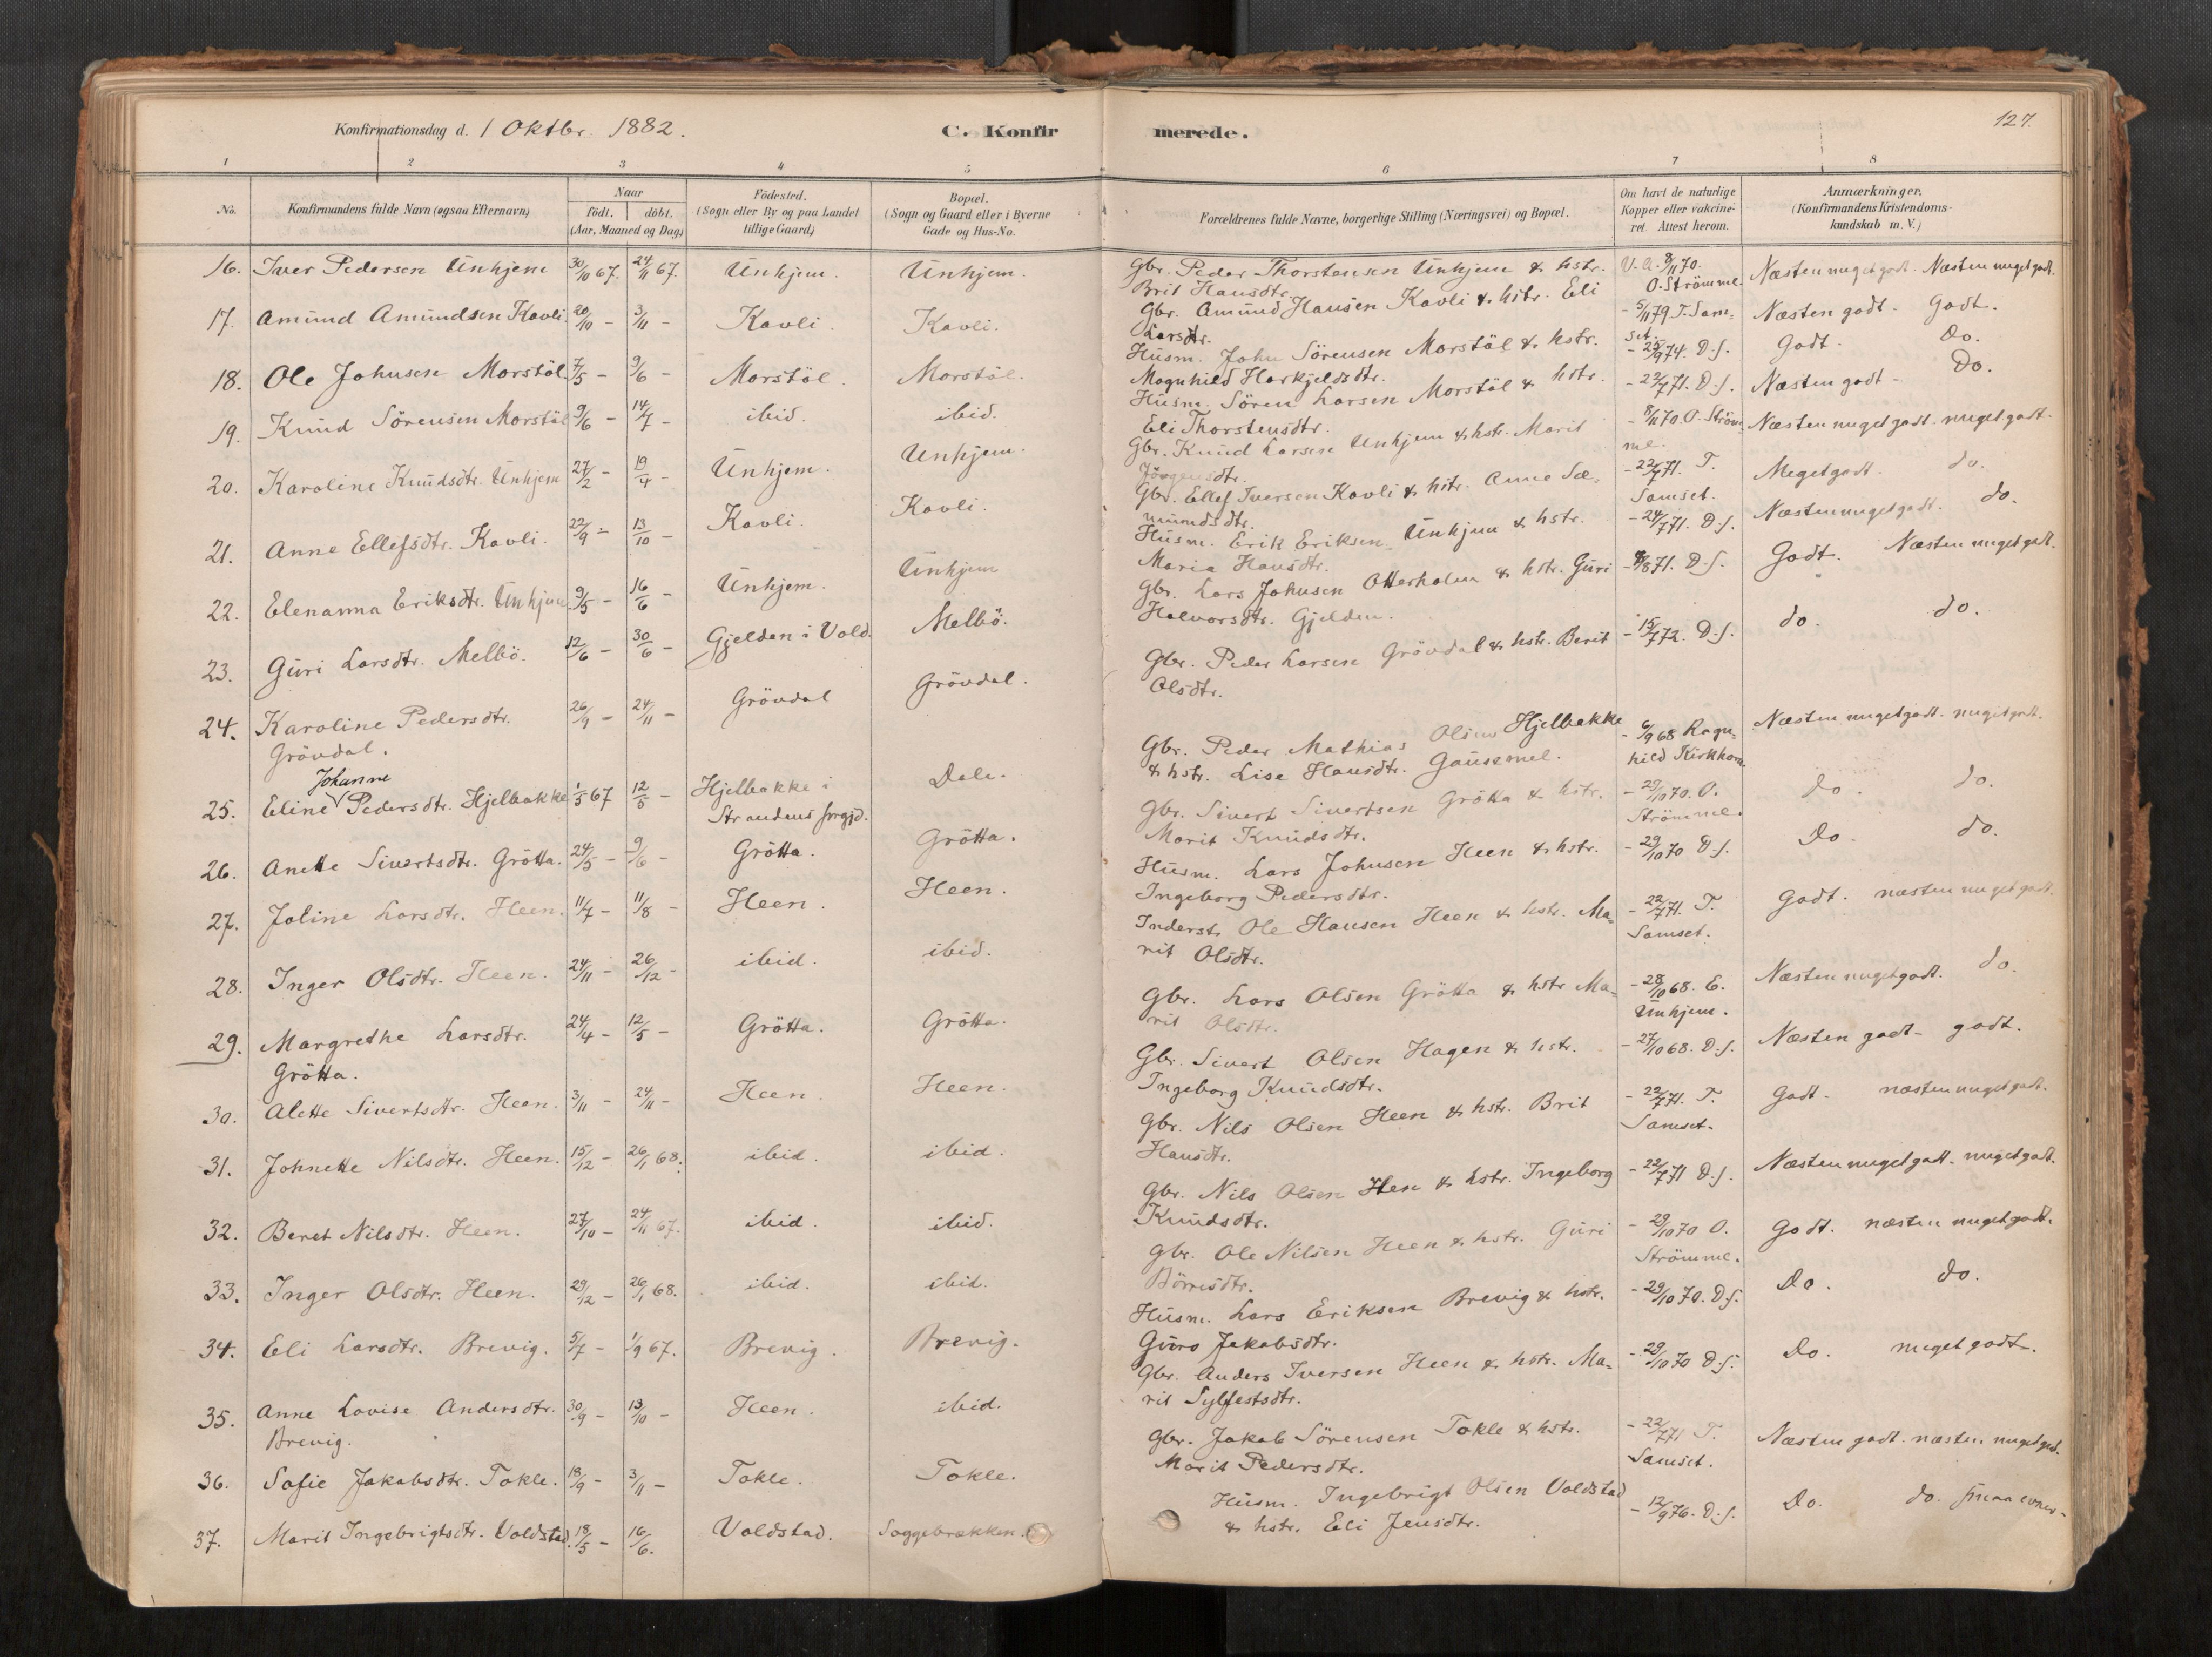 Konfirmationsdag d. 1 Oktbr. 1882.
C. Konfirmerede.
127.
1 2 3 4 5 6 7 8
No.
Konfirmandens fulde Navn (ogsaa Efternavn)
Naar
födt. döbt.
(Aar, Maaned og Dag)
Födested.
(Sogn eller By og paa Landet
tillige Gaard)
Bopæl.
(Sogn og Gaard eller i Byerne
Gade og Hus-No.
Forældrenes fulde Navne, borgerlige Stilling (Næringsvei) og Bopæl.
Om havt de naturlige
Kopper eller vakcine-
ret. Attest herom.
Anmærkninger.
(Konfirmandens Kristendoms-
kundskab m. V.)
16. Iver Pedersen Unhjem 30/10 67. 24/11 67. Unhjem. Unhjem. Gbr. Peder Thorstensen Unhjem & hstr. V. a. 8/11 70. Næsten meget godt. Næsten meget godt.
Brit Hansdtr. O. Strömme.
17. Amund Amundsen Kavli. 20/10 - 3/11 - Kavli. Kavli. Gbr. Amund Hansen Kavli & hstr. Eli - 5/11 79 T. Sam- Næsten godt. Godt.
Larsdtr. set.
18. Ole Johnsen Morstöl. 7/5 - 9/6 - Morstöl. Morstöl. Husm. John Sörensen Morstöl & hstr. - 25/9 74. D.s. Godt. Do.
Magnhild Harkjeldsdtr.
19. Knud Sörensen Morstöl 9/6 - 14/7 - ibid. ibid. Husm. Sören Larsen Morstöl & hstr. - 22/7 71. D.s. Næsten godt - Do.
Eli Thorstensdtr.
20. Karoline Knudsdtr. Unhjem 27/2 - 19/4 - Unhjem. Unhjem. Gbr. Knud Larsen Unhjem & hstr. Marit - 8/11 70 O. Ström- Næsten meget godt. meget godt.
Jörgensdtr. me.
21. Anne Ellefsdtr. Kavli. 22/9 - 13/10 - Kavli. Kavli. Gbr. Ellef Iversen Kavli & hstr. Anne Sæ- - 22/7 71. T. Meget godt. do.
mundsdtr. Samset.
22. Elenanna Eriksdtr. Unhjem. 9/5 - 16/6 - Unhjem. Unhjem Husm. Erik Eriksen Unhjem & hstr. - 24/7 71. D.s. Næsten meget godt. do.
Maria Hansdtr.
23. Guri Larsdtr. Melbö. 12/6 - 30/6 - Gjelden i Vold. Melbö. Gbr. Lars Johnsen Otterholm & hstr. Guri - 8/8 71. D.s. Godt. Næsten meget godt.
Halvorsdtr. Gjelden.
24. Karoline Pedersdtr. 26/9 - 24/11 - Grövdal Grövdal. Gbr. Peder Larsen Grövdal & hstr. Berit - 15/7 72. D.s. do. do.
Grövdal. Olsdtr.
Johanne
25. Eline Pedersdtr. Hjelbakke 1/5 67 12/5 - Hjelbakke i Dale. Gbr. Peder Mathias Olsen Hjelbakke - 6/9 68 Ragn- Næsten meget godt. meget godt.
Strandens prgjd. & hstr. Lise Hansdtr. Gausemel. hild Kirkhorn.
26. Anette Sivertsdtr. Grötta. 24/5 - 9/6 - Grötta. Grötta. Gbr. Sivert Sivertsen Grötta & hstr. - 29/10 70. O. do. do.
Marit Knudsdtr. Strömme.
27. Joline Larsdtr. Heen. 11/7 - 11/8 - Heen. Heen. Husm. Lars Johnsen Heen & hstr. - 29/10 70 D.s. Do do.
Ingeborg Pedersdtr.
28. Inger Olsdtr. Heen. 24/11 - 26/12 - ibid. ibid. Inderst. Ole Hansen Heen & hstr. Ma- - 22/7 71. T. Godt. næsten meget godt.
rit Olsdtr. Samset.
29. Margrethe Larsdtr. 24/4 - 12/5 - Grötta. Grötta. Gbr. Lars Olsen Grötta & hstr Ma- - 28/10 68. E. Næsten meget godt. do.
Grötta. rit Olsdtr. Unhjem.
30. Alette Sivertsdtr. Heen. 3/11 - 24/11 - Heen. Heen. Gbr. Sivert Olsen Hagen & hstr. - 27/10 68. D.s. Næsten godt - godt.
Ingeborg Knudsdtr.
31. Johnette Nilsdtr. Heen. 15/12 - 26/1 68. ibid. ibid. Gbr. Nils Olsen Heen & hstr. Brit - 22/7 71. T. Godt - næsten meget godt.
Hansdtr. Samset.
32. Beret Nilsdtr. Heen. 27/10 - 24/11 67. ibid. ibid. Gbr. Nils Olsen Hen & hstr. Ingeborg - 22/7 71 D.s. Næsten meget godt. meget godt.
Knudsdtr.
33. Inger Olsdtr. Heen. 29/12 - 26/1 68. ibid. ibid. Gbr. Ole Nilsen Heen & hstr. Guri - 29/10 70 O. Godt. næsten meget godt.
Börresdtr. Strömme.
34. Eli Larsdtr. Brevig. 5/7 - 1/9 67. Brevig. Brevig. Husm. Lars Eriksen Brevig & hstr. - 29/10 70. D.s. Do. do.
Guro Jakobsdtr.
35. Anne Lovise Andersdtr. 30/9 - 13/10 - Heen. ibid. Gbr. Anders Iversen Heen & hstr. Ma- - 29/10 70 D.s. Do. meget godt.
Brevig. rit Sylfestsdtr.
36. Sofie Jakobsdtr. Tokle. 18/9 - 3/11 - Tokle. Tokle. Gbr. Jakob Sörensen Tokle & hstr. - 22/7 71 T. Næsten godt. næsten meget godt.
Marit Pedersdtr. Samset.
37. Marit Ingebrigtsdtr. Voldstad. 18/5 - 16/6. Voldstad. Soggebrækken. Husm. Ingebrigt Olsen Voldstad - 12/9 76. D.s. Do. do. smaa evner.
& hstr. Eli Jensdtr.